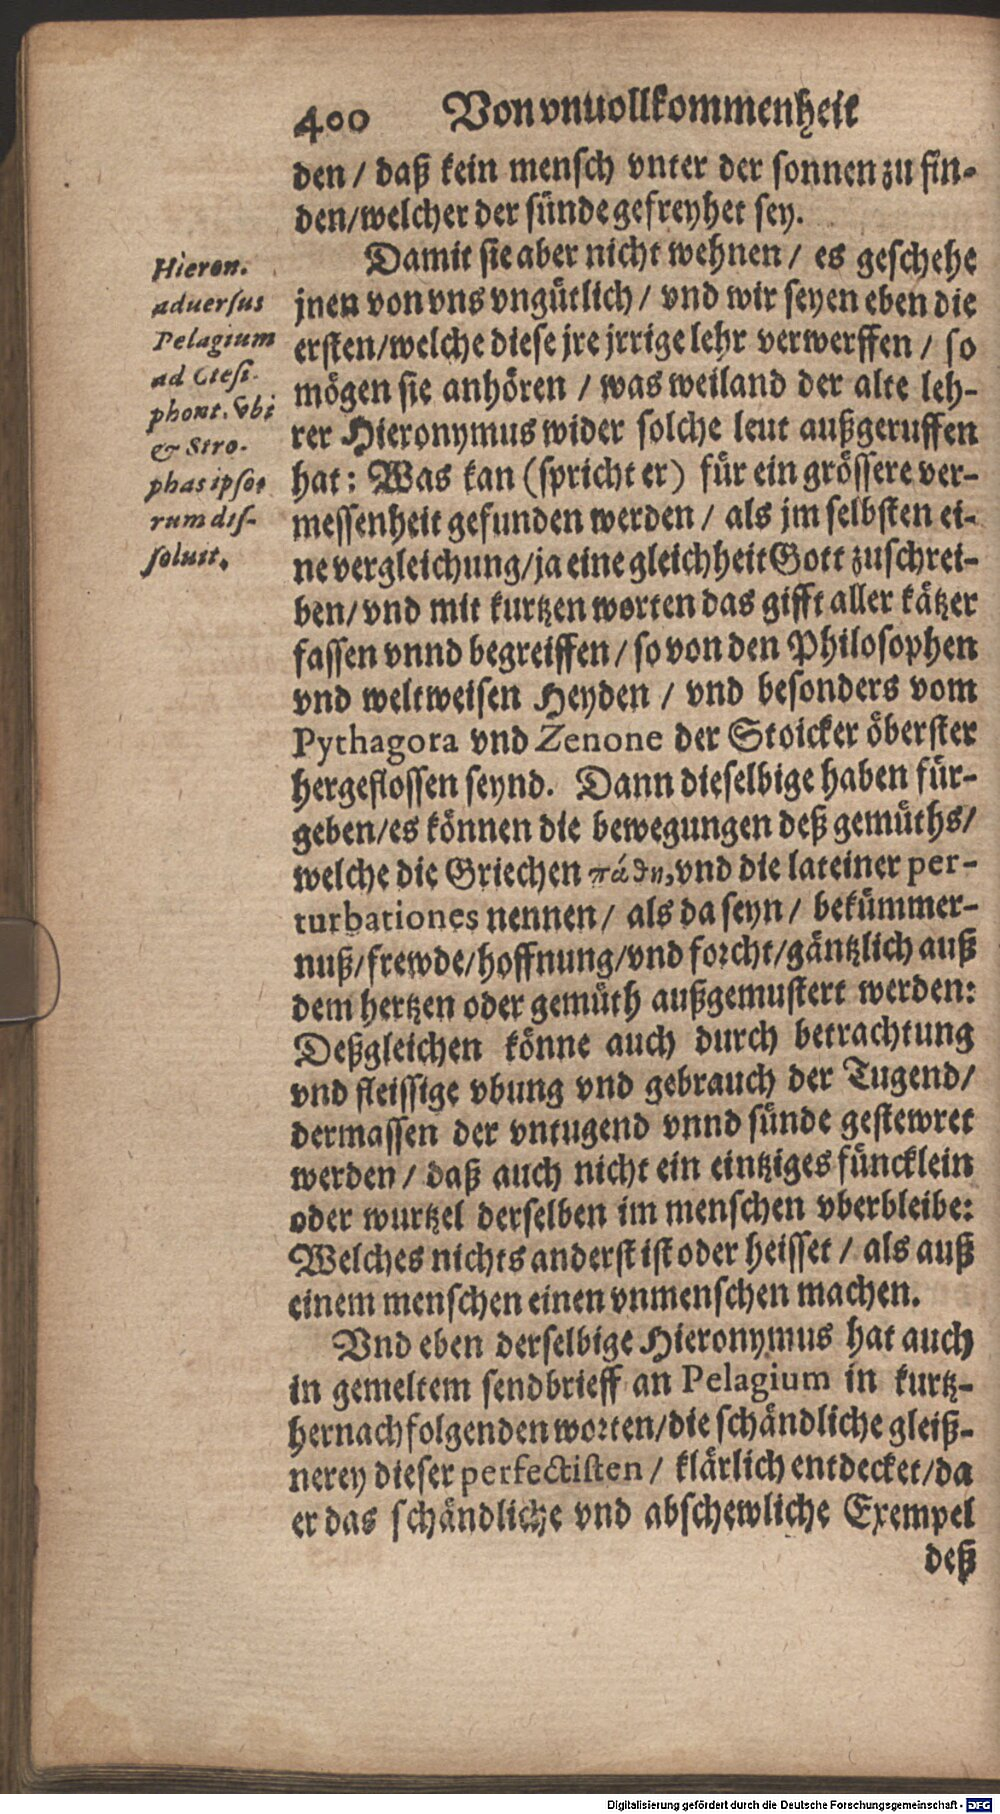 400 Von vnuollkommenheit
den / daß kein mensch vnter der sonnen zu fin-
den/welcher der sünde gefreyhet sey.
Damit sie aber nicht wehnen / es geschehe
jnen von vns vngütlich / vnd wir seyen eben die
ersten/welche diese jre jrrige lehr verwerffen / so
mögen sie anhören / was weiland der alte leh-
rer Hieronymus wider solche leut außgeruffen
hat: Was kan (spricht er) für ein grössere ver-
messenheit gefunden werden / als jm selbsten ei-
ne vergleichung/ja eine gleichheit Gott zuschrei-
ben/vnd mit kurtzen worten das gifft aller kätzer
fassen vnnd begreiffen / so von den Philosophen
vnd weltweisen Heyden / vnd besonders vom
Pythagora vnd Zenone der Stoicker öberster
hergeflossen seynd. Dann dieselbige haben für-
geben/es können die bewegungen deß gemüths/
welche die Griechen πάθη, vnd die lateiner per-
turbationes nennen / als da seyn / bekümmer-
nuß/frewde/hoffnung/vnd forcht/gäntzlich auß
dem hertzen oder gemüth außgemustert werden:
Deßgleichen könne auch durch betrachtung
vnd fleissige vbung vnd gebrauch der Tugend/
dermassen der vntugend vnnd sünde gestewret
werden / daß auch nicht ein eintziges füncklein
oder wurtzel derselben im menschen vberbleibe:
Welches nichts anderst ist oder heisset / als auß
einem menschen einen vnmenschen machen.
Vnd eben derselbige Hieronymus hat auch
in gemeltem sendbrieff an Pelagium in kurtz-
hernachfolgenden worten/die schändliche gleiß-
nerey dieser perfectisten / klärlich entdecket/da
er das schändliche vnd abschewliche Exempel
deß
Hieron.
aduersus
Pelagium
ad Ctesi-
phont. vbi
& Stro-
phas ipso-
rum dis-
soluit.
Digitalisierung gefördert durch die Deutsche Forschungsgemeinschaft - DFG